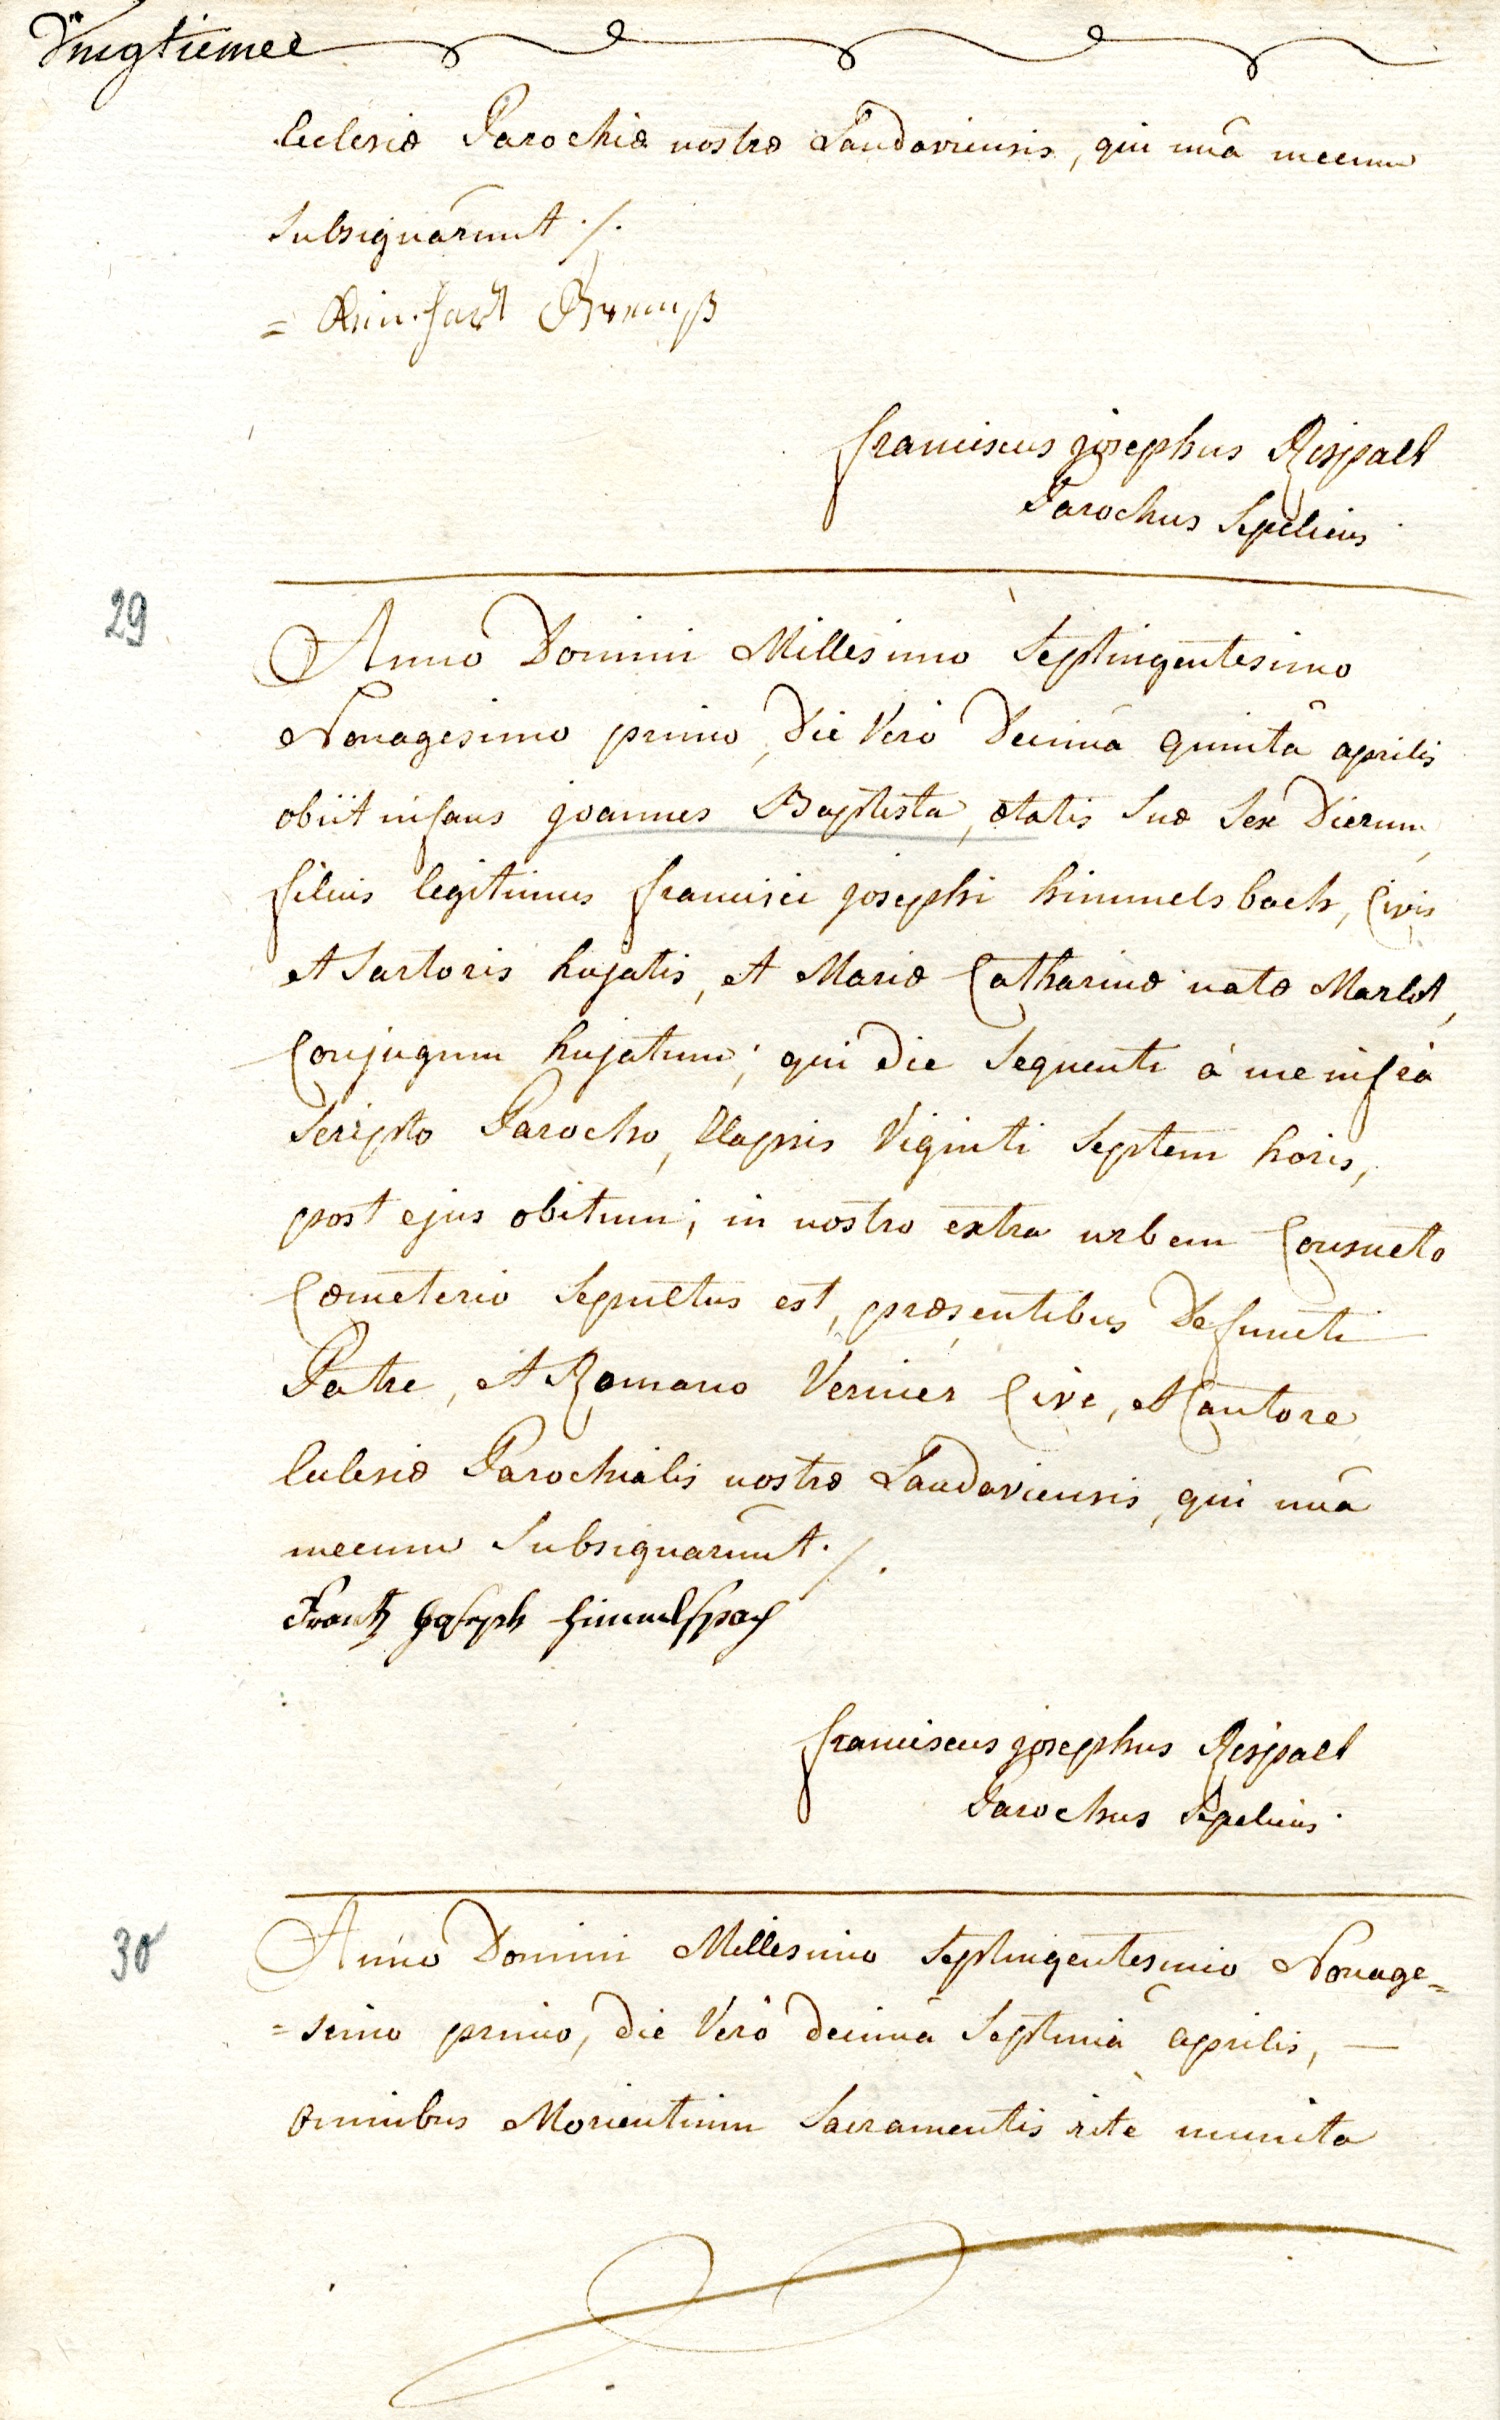 Vingtieme
Ecclesiæ Parochiæ nostræ Landaviensis, qui unâ mecum
Subsignârunt ./.
= Reinhart
franciscus josephus Rispalt
Parochus Sepeliens
29
Anno Domini Millesimo Septingentesimo
Nonagesimo primo, Die Verò Decimâ quintâ aprilis
obiit infans joannes Baptista, ætatis Suæ Sex Dierum,
filius legitimus francisci josephi himmelsbach, Civis
et Sartoris hujatis, et Mariæ Catharinæ natæ Marlot,
Conjugum hujatum; qui die Sequenti à me infrà
Scripto Parocho, Elapsis Viginti Septem horis,
post ejus obitum, in nostro extra urbem Consueto
Cœmeterio Sepultus est, præsentibus Defuncti
Patre, et Romano Vernier Cive, et Cantore
Ecclesiæ Parochialis nostræ Landaviensis, qui unâ
mecum Subsignarûnt ./.
Frantz Joseph Himmelspach
franciscus josephus Rispalt
Parochus Sepeliens
30
Anno Domini Millesimo Septingentesimo Nonage=
=simo primo, die Verò decimâ Septimâ aprilis, —
omnibus Morientium Sacramentis ritè munita